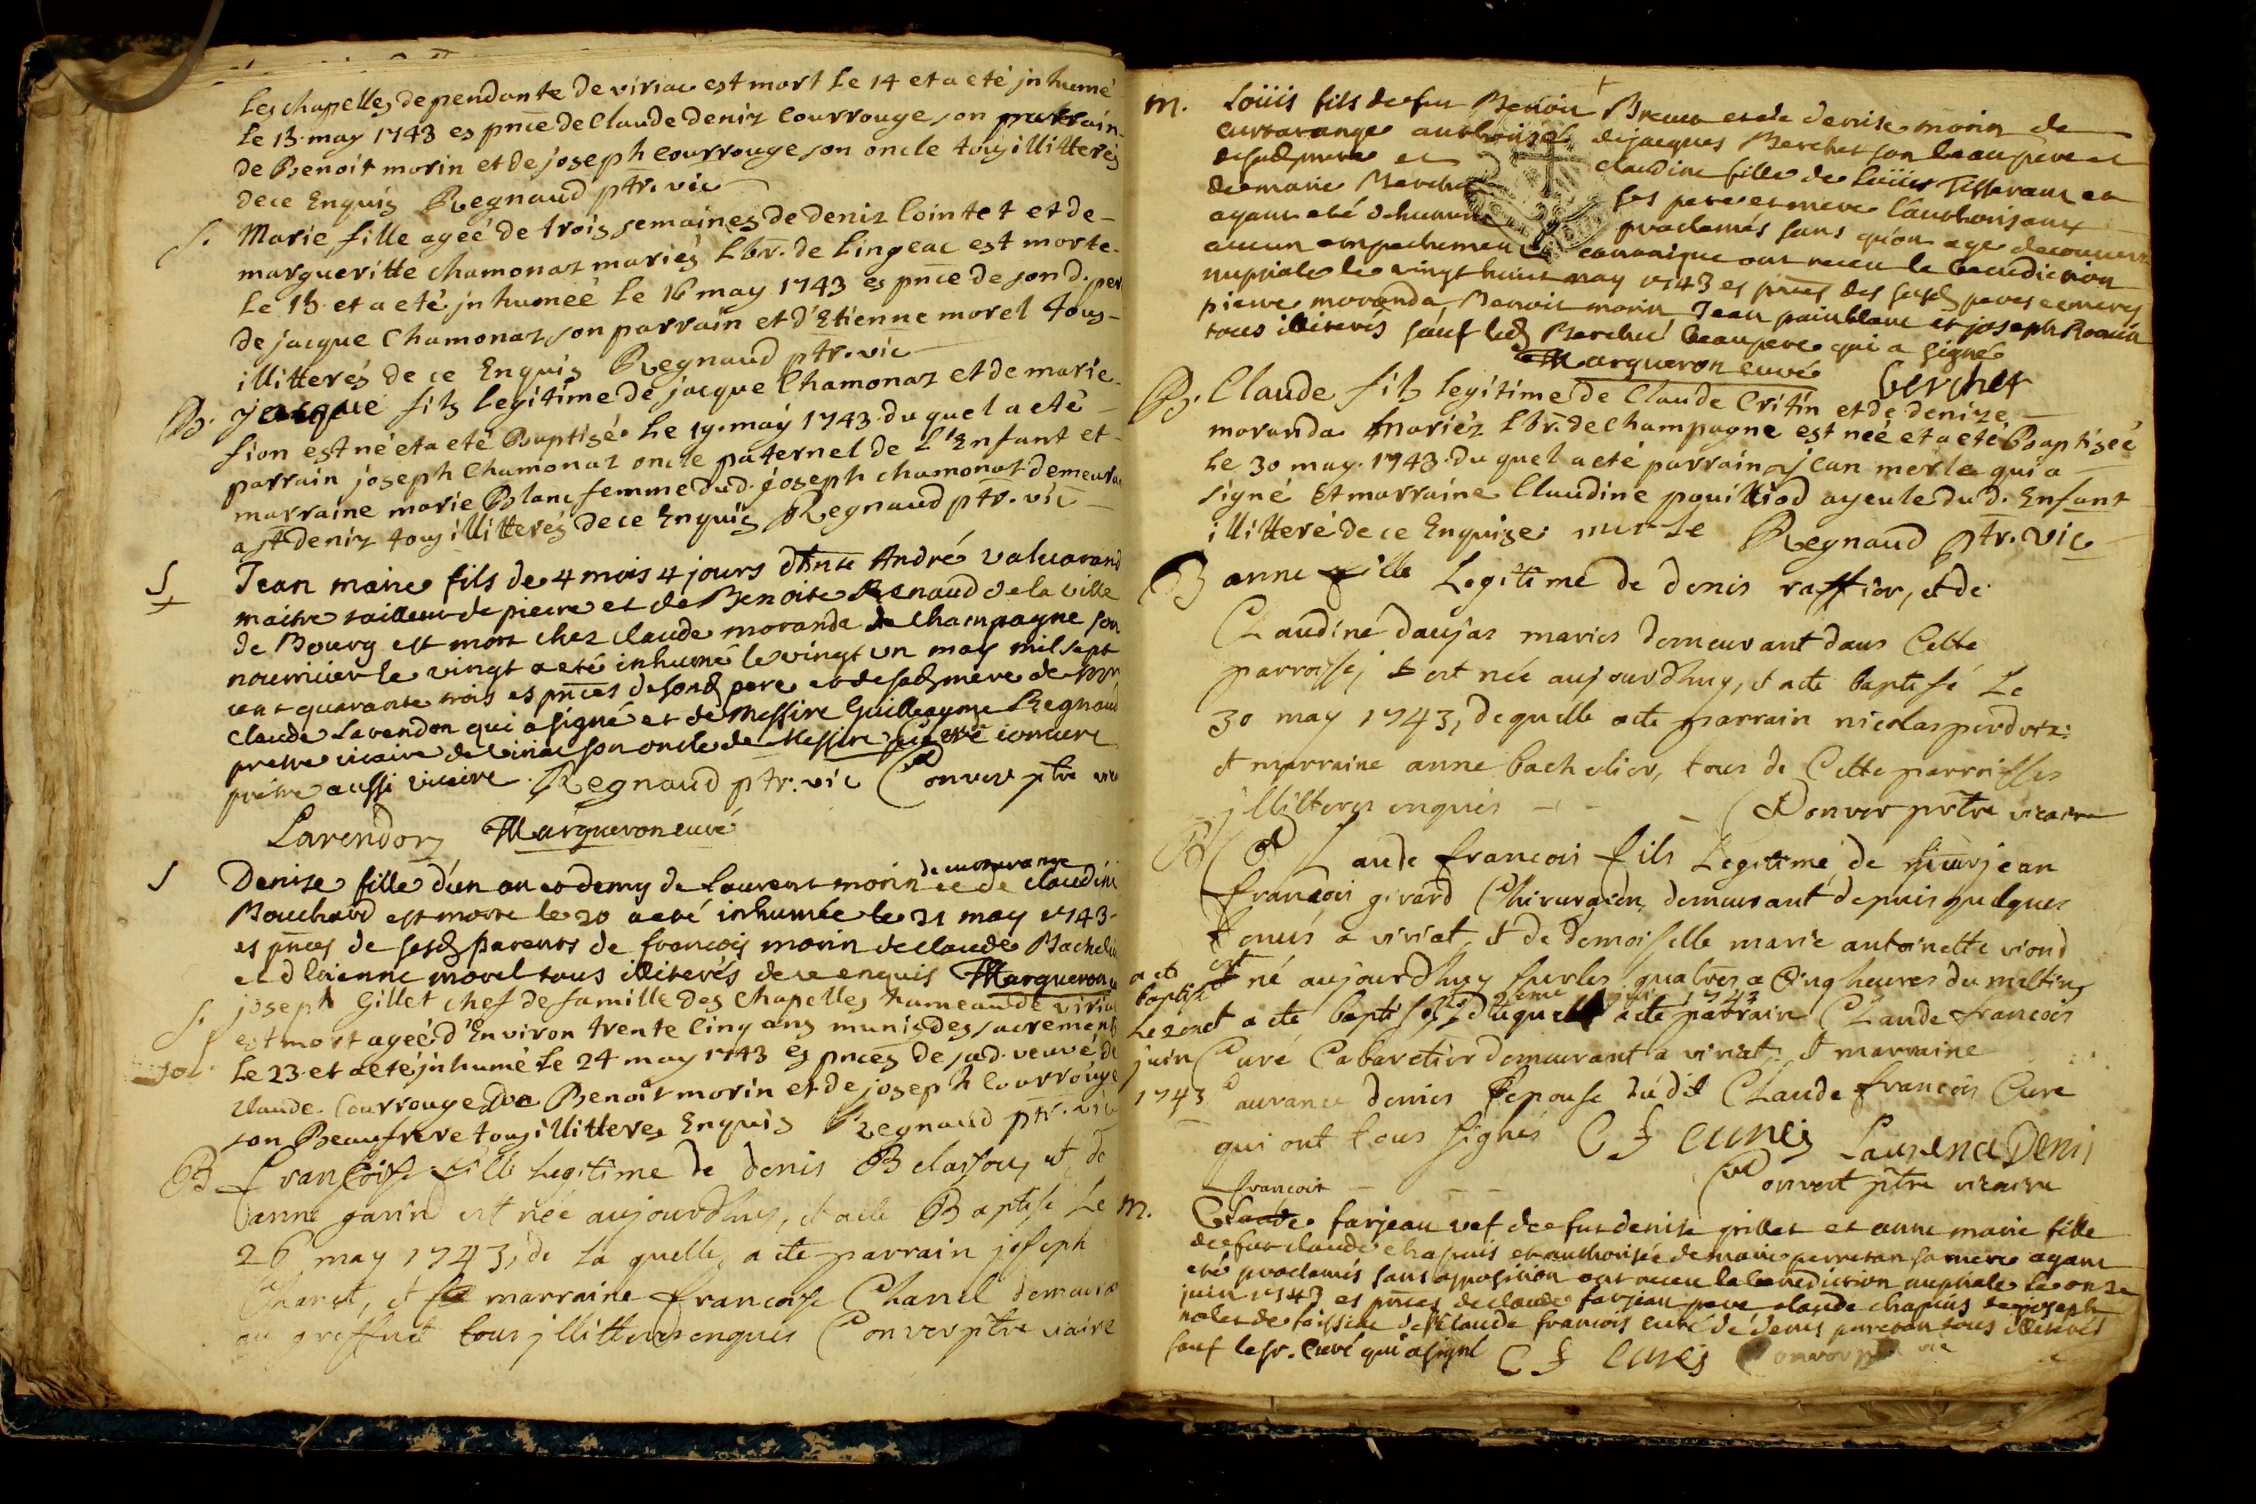 les chapelles dependante de viriac est mort le 14 et a eté jnhumé
le 15 may 1743 es pnce de Claude Deniz Courrouge son parrain
de Benoit morin et de joseph Courrouge son oncle tous illitterés
de ce Enquis Regnaud ptr. vic
S. Marie fille ageé de trois semaines de Deniz Cointet et de
margueritte Chamonaz mariés lbr. de Lingeac est morte
le 15 et a eté jnhumeé le 16 may 1743 es pnce de son d. per
de jacque Chamonaz son parrain et d'Etienne morel tous
illitterés de ce Enquis Regnaud ptr. vic
B. jacque fils legitime de jacque Chamonaz et de marie
fion est né et a eté Baptisé le 19 may 1743 du quel a eté
parrain joseph Chamonaz oncle paternel de l'Enfant et
marraine marie Blanc femme dud. joseph chamonaz demeura
a st deniz tous illitterés de ce Enquis Regnaud ptr. vic
S Jean marie fils de 4 mois 4 jours André
maitre tailleur de pierre et de Benoite Renaud de la ville
de Bourg est mort chez claude moranda de Champagne son
nourricier le vingt a eté inhumé le vingt un may mil sept
cent quarante trois es pnces de sond pere et de sad mere de
Claude Lavendon qui a signé et de Messire Guilleaume Regnaud
pretre vicaire de viriac son oncle de Messire
pretre aussi vicaire. Regnaud ptr. vic Conver ptre vic
Lavendon Margueron curé
S Denise fille d'un an et demy de Laurent morin et de claudine
Bouchard est morte le 20 a eté inhumée le 21 may 1743
es pnces de sesd parents de francois morin de claude Bachelier
et d'Etienne morel tous illiterés de ce enquis Margueron
S. joseph Gillet chef de famille des Chapelles hameau de viriac
est mort ageé d'Environ trente cinq ans munis des sacrements
le 23 et a eté jnhumé le 24 may 1743 es pnces de sad. veuve de
Claude Courrouge de Benoit morin et de joseph Courrouge
son Beaufrere tous illitteres Enquis Regnaud ptr. vic
B françoise fille legitime de denis et de
anne garin est née aujourdhuy, et a eté Baptise Le
26 may 1743, de la quelle a ete parrain joseph
et marraine francoise Chanel
tous jllitteres enquis Conver ptre vicaire
m. Loüis fils de feu Benoit et de denise morin de
authorisé de jacques Berchet son beaupere et
de sad mere et claudine fille de Loüis Tisserant et
de marie Berchet ses pere et mere l'authorisant
ayant eté proclamés sans qu'on aye decouvert
aucun empechement canonique ont receu la benediction
nuptiale le vingt huit may 1743 es pnces des susd peres et meres
pierre moranda, Benoit morin Jean painblanc et joseph
tous illiterés sauf led Berchet beaupere qui a signé
Margueron curé Berchet
B. Claude fils legitime de Claude Critin et de denize
moranda mariéz lbr. de Champagne est neé et a eté Baptiseé
le 30 may 1743 du quel a eté parrain jean merle qui a
signé Et marraine Claudine pouilliod ayeule du d. Enfant
illitteré de ce Enquise merle Regnaud ptr. vic
B anne fille Legitime de denis raffior, et de
Claudine daujaz maries demeurant dans Cette
parroisse, est née aujourdhuy, et a ete baptisé Le
30 may 1743, de quelle a ete parrain nicolas
et marraine anne bachelier, tous de Cette parroisse
jllitteres enquis Conver prtre vicaire
B Claude francois fils Legitime de sieur jean
françois girard Chirurgien demeurant depuis quelques
a viriat, et de demoiselle marie antoinette viond
est né aujourdhuy sur les quatres a Cinq heures du mattin
et a ete baptisé duquel a ete parrain Claude francois
a ete
baptisé
Le 2
juin
1743
Curé Cabaretier demeurant a viriat, et marraine
Laurance denis Epouse du dit Claude francois Cure
qui ont tous signés C f cures Laurence Denis
Convert ptre vicaire
francois
m. Claude farjeau vef de fut denise grillet et anne marie fille
de fut claude chapuis et authorisée de marie perretan sa mere ayant
eté proclamés sans opposition ont receu la benediction nuptiale le onze
juin 1743 es pnces de claude farjeau pere claude chapuis de joseph
de Claude francois curé de denis perretan tous illiterés
sauf le sr. Curé qui a signé C f cures Conver